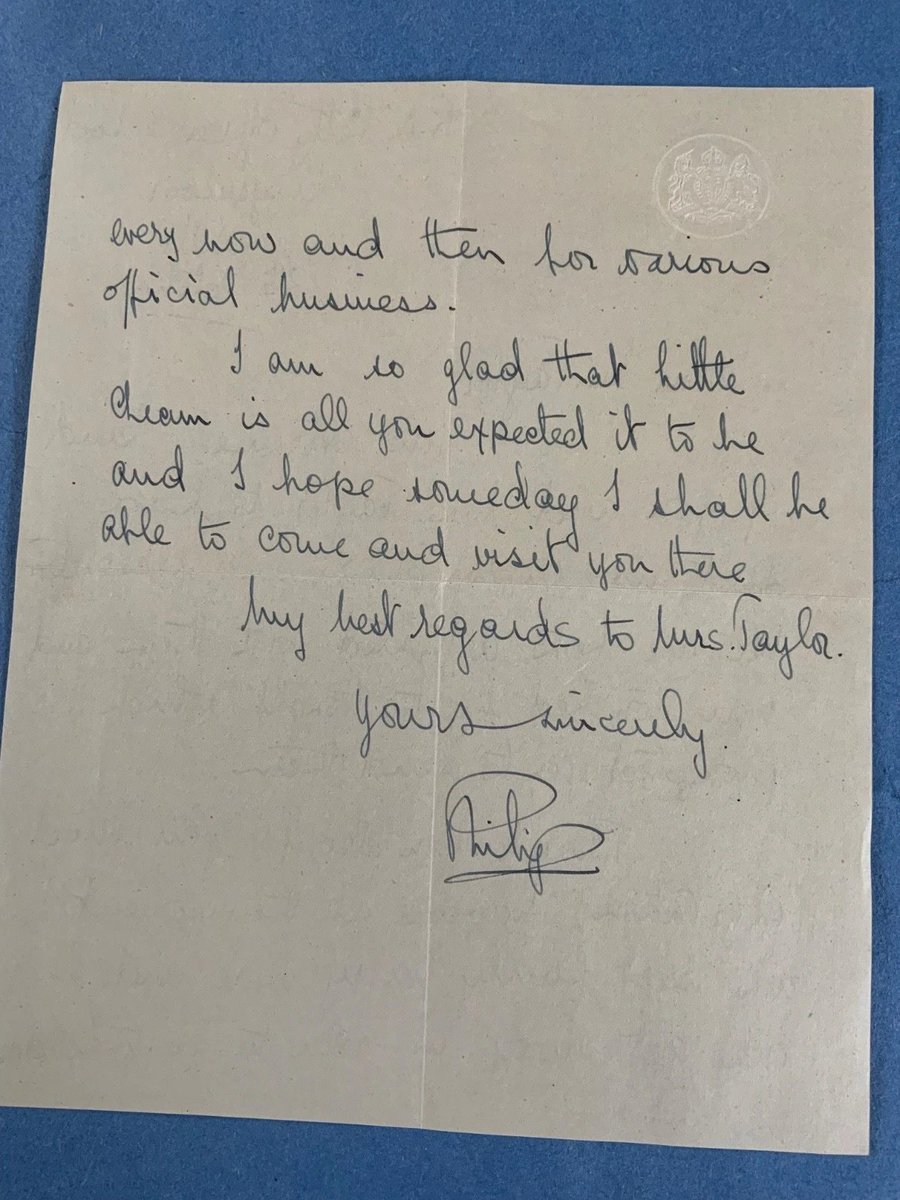 every now and then for various
official business.
I am so glad that little
Cheam is all you expected it to be
and I hope someday I shall be
able to come and visit you there
My best regards to Mrs. Taylor.
Yours sincerely
Philip